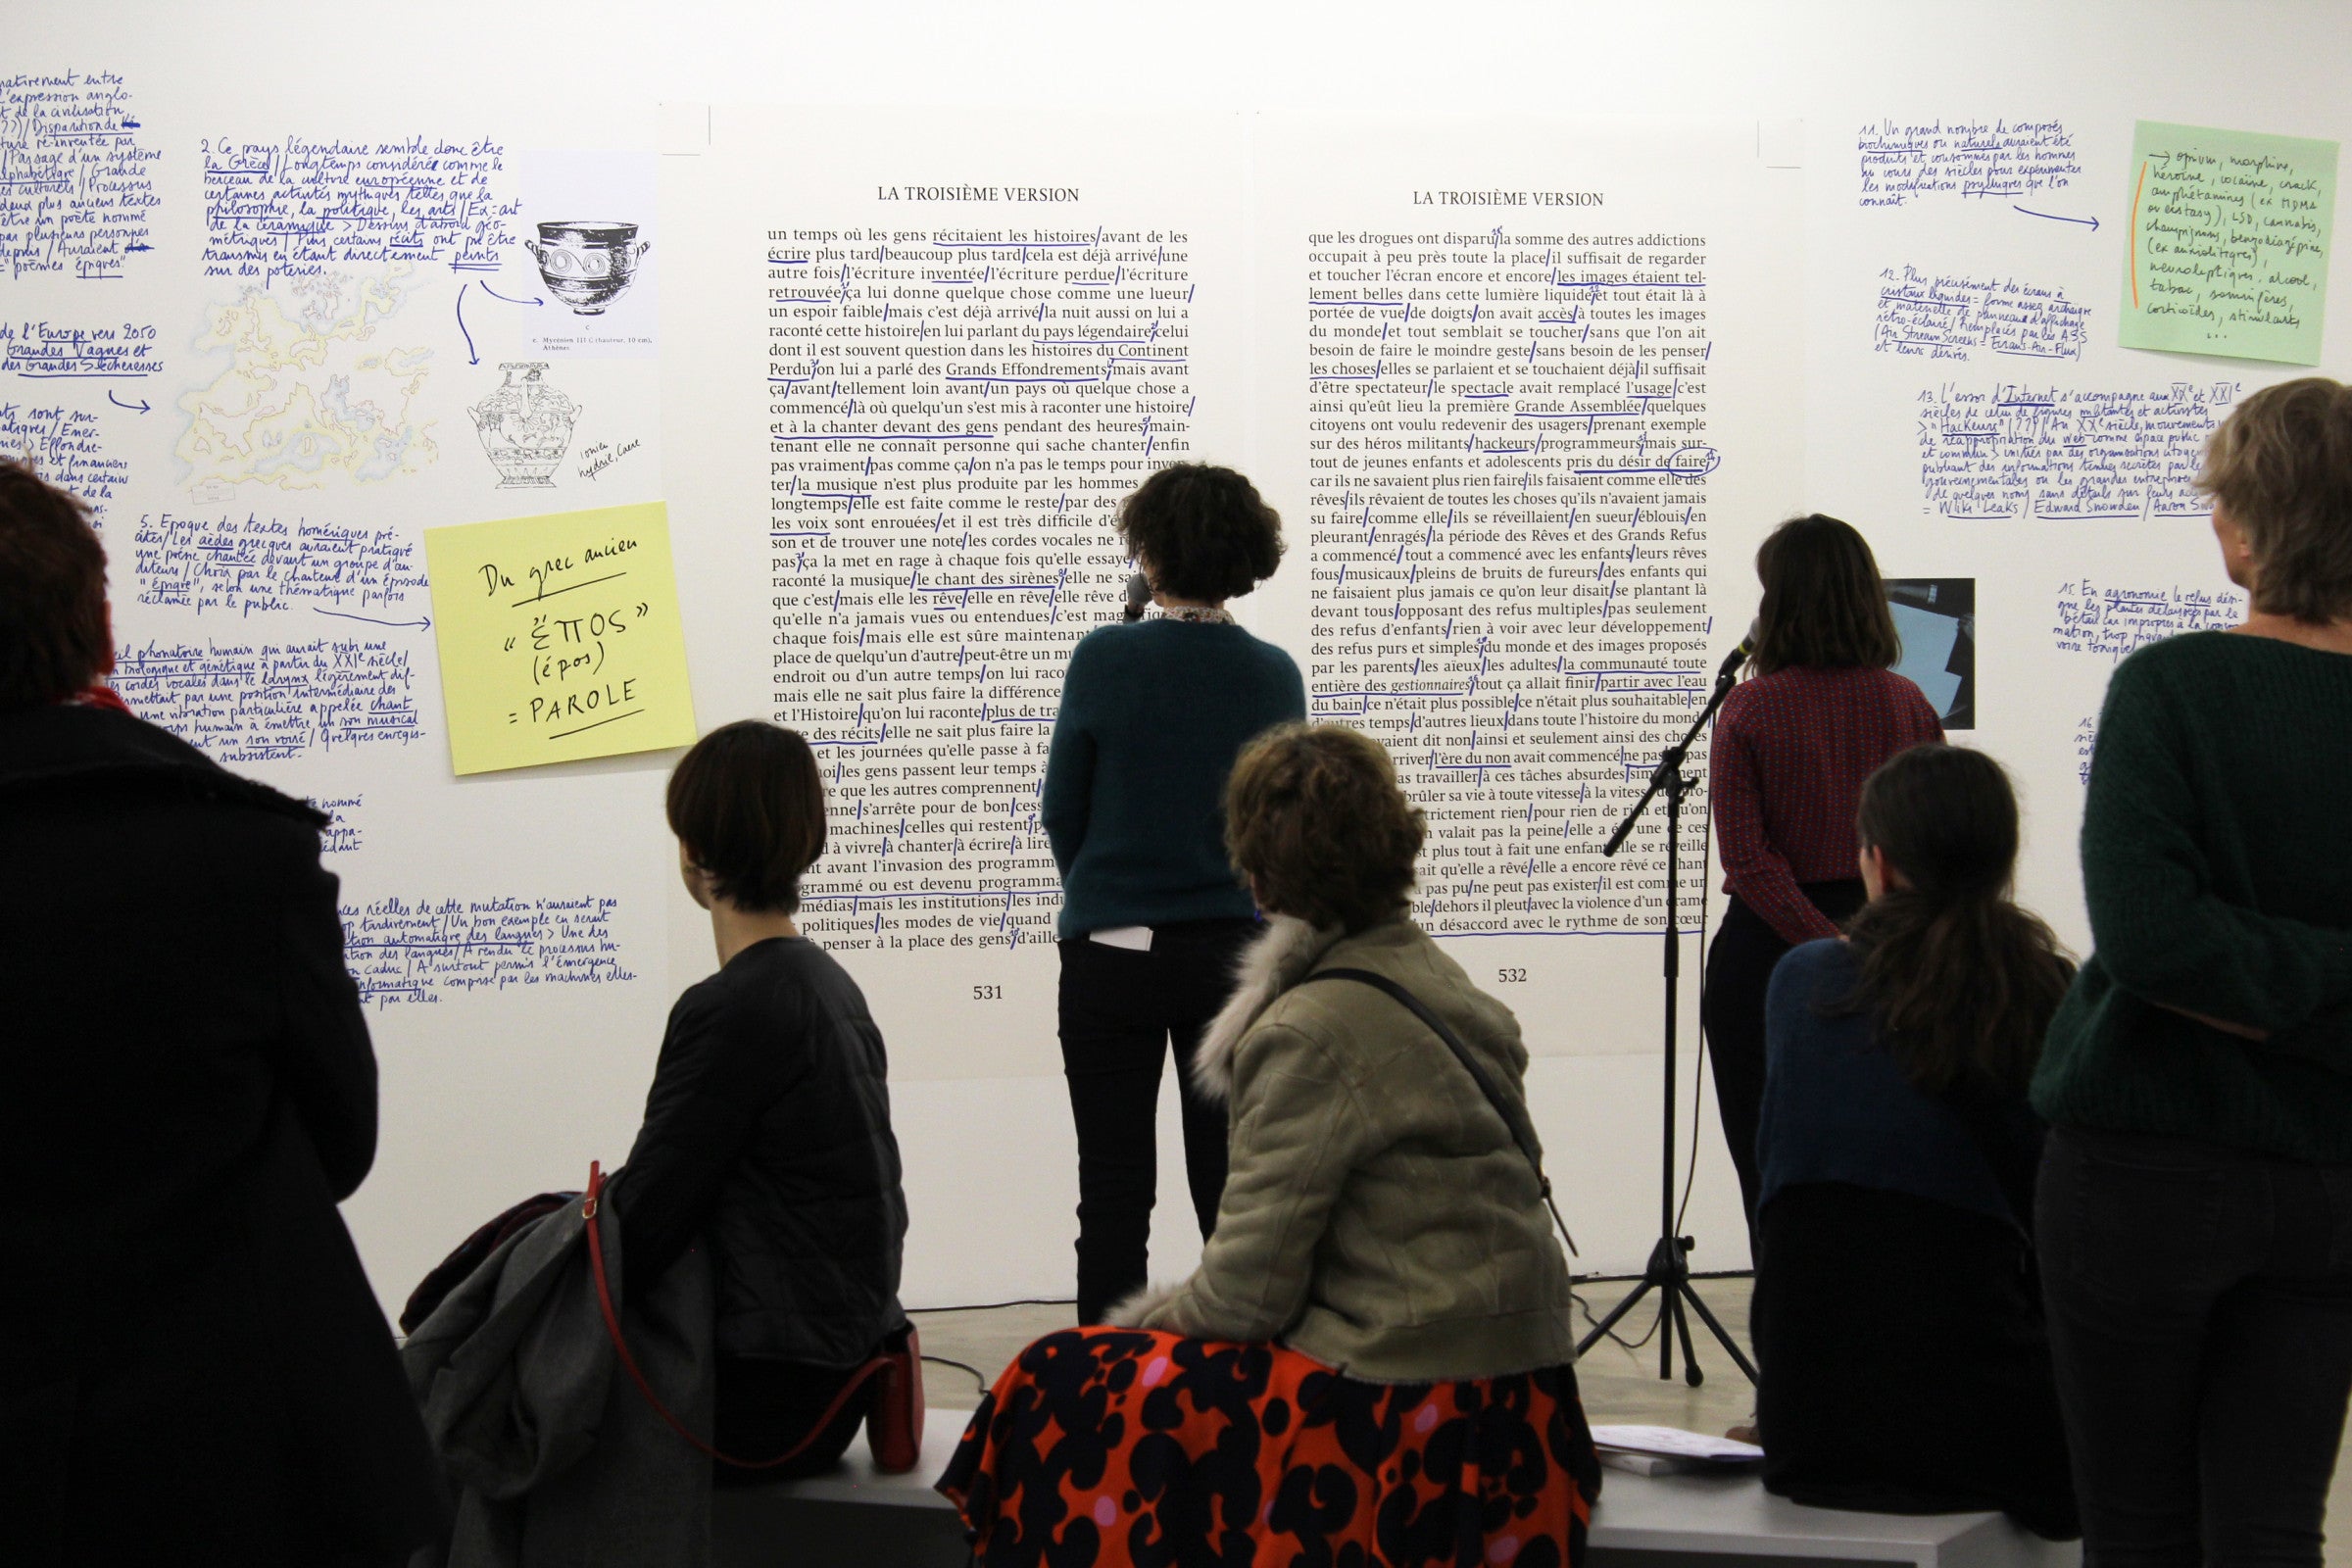 natirement entre
l'expression anglo-
t de la civilisation
??)/Disparition de
ture ré-inventée par
/Passage d'un système
alphabétique/Grande
es culturels/Processus
deux plus anciens textes
être un poète nommé
par plusieurs personnes
depuis/Auraient
="poèmes épiques"
de l'Europe vers 2050
Grandes Vagues et
des Grandes Sécheresses
nts sont sur-
atiques/Ener-
Effondre-
et financiers
dans certains
t de la
2. Ce pays légendaire semble donc être
la Grèce/Longtemps considérée comme le
berceau de la culture européenne et de
certaines activités mythiques telles que la
philosophie, la politique, les arts/Ex = art
de la céramique > Dessins d'abord géo-
métriques/Puis certains récits ont pu être
transmis en étant directement peints
sur des poteries.
c
c. Mycénien III C (hauteur, 10 cm),
Athènes.
ionien
hydrie, Caere
5. Epoque des textes homériques pré-
cités/Les aèdes grecques auraient pratiqué
une poésie chantée devant un groupe d'au-
diteurs/Choix par le chanteur d'un épisode
"épique", selon une thématique parfois
réclamée par le public.
Du grec ancien
"ἔΠOS"
(épos)
= PAROLE
eil phonatoire humain qui aurait subi une
n biologique et génétique à partir du XXIe siècle/
es cordes vocales dans le larynx légèrement dif-
rmettait par une position intermédiaire des
une vibration particulière appelée chant
corps humain à émettre un son musical
ent un son voisé/Quelques enregis-
subsistent.
nommé
la
appa-
édant
nces réelles de cette mutation n'auraient pas
op tardivement/Un bon exemple en serait
tion automatique des langues > Une des
ntion des langues/A rendu le processus hu-
n caduc/A surtout permis l'émergence
informatique comprise par les machines elles-
t par elles.
LA TROISIÈME VERSION
un temps où les gens récitaient les histoires/avant de les
écrire plus tard/beaucoup plus tard/cela est déjà arrivé/une
autre fois/l'écriture inventée/l'écriture perdue/l'écriture
retrouvée/ça lui donne quelque chose comme une lueur/
un espoir faible/mais c'est déjà arrivé/la nuit aussi on lui a
raconté cette histoire/en lui parlant du pays légendaire/celui
dont il est souvent question dans les histoires du Continent
Perdu/on lui a parlé des Grands Effondrements/mais avant
ça/avant/tellement loin avant/un pays où quelque chose a
commencé/là où quelqu'un s'est mis à raconter une histoire/
et à la chanter devant des gens pendant des heures/main-
tenant elle ne connaît personne qui sache chanter/enfin
pas vraiment/pas comme ça/on n'a pas le temps pour inven-
ter/la musique n'est plus produite par les hommes
longtemps/elle est faite comme le reste/par des
les voix sont enrouées/et il est très difficile d'é
son et de trouver une note/les cordes vocales ne
pas/ça la met en rage à chaque fois qu'elle essaye/
raconté la musique/le chant des sirènes/elle ne sa
que c'est/mais elle les rêve/elle en rêve/elle rêve d
qu'elle n'a jamais vues ou entendues/c'est mag
chaque fois/mais elle est sûre maintenant
place de quelqu'un d'autre/peut-être un mu
endroit ou d'un autre temps/on lui raco
mais elle ne sait plus faire la différence
et l'Histoire/qu'on lui raconte/plus de tra
e des récits/elle ne sait plus faire la
et les journées qu'elle passe à fa
oi/les gens passent leur temps à
re que les autres comprennent/
enne/s'arrête pour de bon/cess
machines/celles qui restent/p
à vivre/à chanter/à écrire/à lire
nt avant l'invasion des programm
grammé ou est devenu programma
médias/mais les institutions/les indu
politiques/les modes de vie/quand
à penser à la place des gens/d'aille
531
LA TROISIÈME VERSION
que les drogues ont disparu/la somme des autres addictions
occupait à peu près toute la place/il suffisait de regarder
et toucher l'écran encore et encore/les images étaient tel-
lement belles dans cette lumière liquide/et tout était là à
portée de vue/de doigts/on avait accès/à toutes les images
du monde/et tout semblait se toucher/sans que l'on ait
besoin de faire le moindre geste/sans besoin de les penser/
les choses/elles se parlaient et se touchaient déjà/il suffisait
d'être spectateur/le spectacle avait remplacé l'usage/c'est
ainsi qu'eût lieu la première Grande Assemblée/quelques
citoyens ont voulu redevenir des usagers/prenant exemple
sur des héros militants/hackeurs/programmeurs/mais sur-
tout de jeunes enfants et adolescents pris du désir de faire/
car ils ne savaient plus rien faire/ils faisaient comme elle des
rêves/ils rêvaient de toutes les choses qu'ils n'avaient jamais
su faire/comme elle/ils se réveillaient/en sueur/éblouis/en
pleurant/enragés/la période des Rêves et des Grands Refus
a commencé/tout a commencé avec les enfants/leurs rêves
fous/musicaux/pleins de bruits de fureurs/des enfants qui
ne faisaient plus jamais ce qu'on leur disait/se plantant là
devant tous/opposant des refus multiples/pas seulement
des refus d'enfants/rien à voir avec leur développement/
des refus purs et simples/du monde et des images proposés
par les parents/les aïeux/les adultes/la communauté toute
entière des gestionnaires/tout ça allait finir/partir avec l'eau
du bain/ce n'était plus possible/ce n'était plus souhaitable/en
d'autres temps/d'autres lieux/dans toute l'histoire du mond
vaient dit non/ainsi et seulement ainsi des choses
rriver/l'ère du non avait commencé/ne pas pas
as travailler/à ces tâches absurdes/sim ment
brûler sa vie à toute vitesse/à la vitesse de pro-
trictement rien/pour rien de rien et qu'on
n valait pas la peine/elle a é une de ces
st plus tout à fait une enfant/elle se réveille
sait qu'elle a rêvé/elle a encore rêvé ce chant
a pas pu/ne peut pas exister/il est comme un
ble/dehors il pleut/avec la violence d'un drame
un désaccord avec le rythme de son cœur
532
11. Un grand nombre de composés
biochimiques ou naturels auraient été
produits et consommés par les hommes
au cours des siècles pour expérimenter
les modifications psychiques que l'on
connaît.
→ opium, morphine,
héroïne, cocaïne, crack,
amphétamines (ex MDMA
ou ecstasy), LSD, cannabis,
champignons, benzodiazépine,
(ex anxiolitiques),
neuroleptiques, alcool,
tabac, somnifères,
corticoïdes, stimulants
...
12. Plus précisément des écrans à
cristaux liquides = forme assez archaïque
et matérielle de panneaux d'affichage
rétro-éclairé/Remplacés par les A3S
(Air Stream Screens = Ecrans-Air-Flux)
et leurs dérivés.
13. L'essor d'Internet s'accompagne aux XXe et XXIe
siècles de celui de figures militantes et activistes
> "Hackeurs" (??)/Au XXe siècle, mouvements
de réappropriation du web comme espace public
et commun > initiés par des organisations citoyen
publiant des informations tenues secrètes par le
gouvernementales ou les grandes entreprises
de quelques noms sans détails sur leurs
= WikiLeaks/Edward Snowden/Aaron Sw
15. En agronomie le refus dési-
gne les plantes délaissées par le
bétail car impropres à la conso
mation, trop
voire toxique
16.